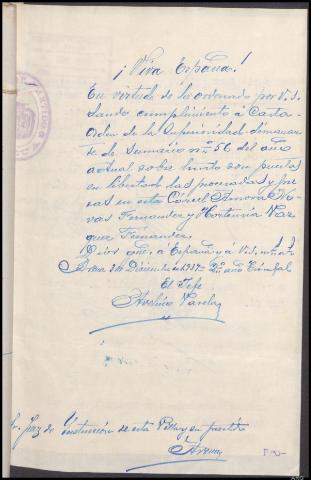 ¡Viva España!
En virtud de lo ordenado por V.S.
dando cumplimiento á Carta-
Orden de la Superioridad dimanan
te de Sumario nº 56 del año
actual sobre hurto son puestas
en libertad las procesadas y pre
sas en esta Cárcel Amora Ri-
vas Fernandez y Hortensia Vaz
quez Fernandez.
Dios gue. á España y á V.S. ms. as.
de Diciembre 1937- 2º año Triunfal
El Jefe
Avelino Varela
Sr. Juez de Instrucción de esta Villa y su partido